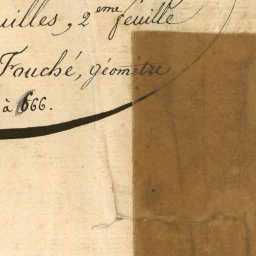 uilles, 2eme feuille
Fouché, géomètre
à 666.